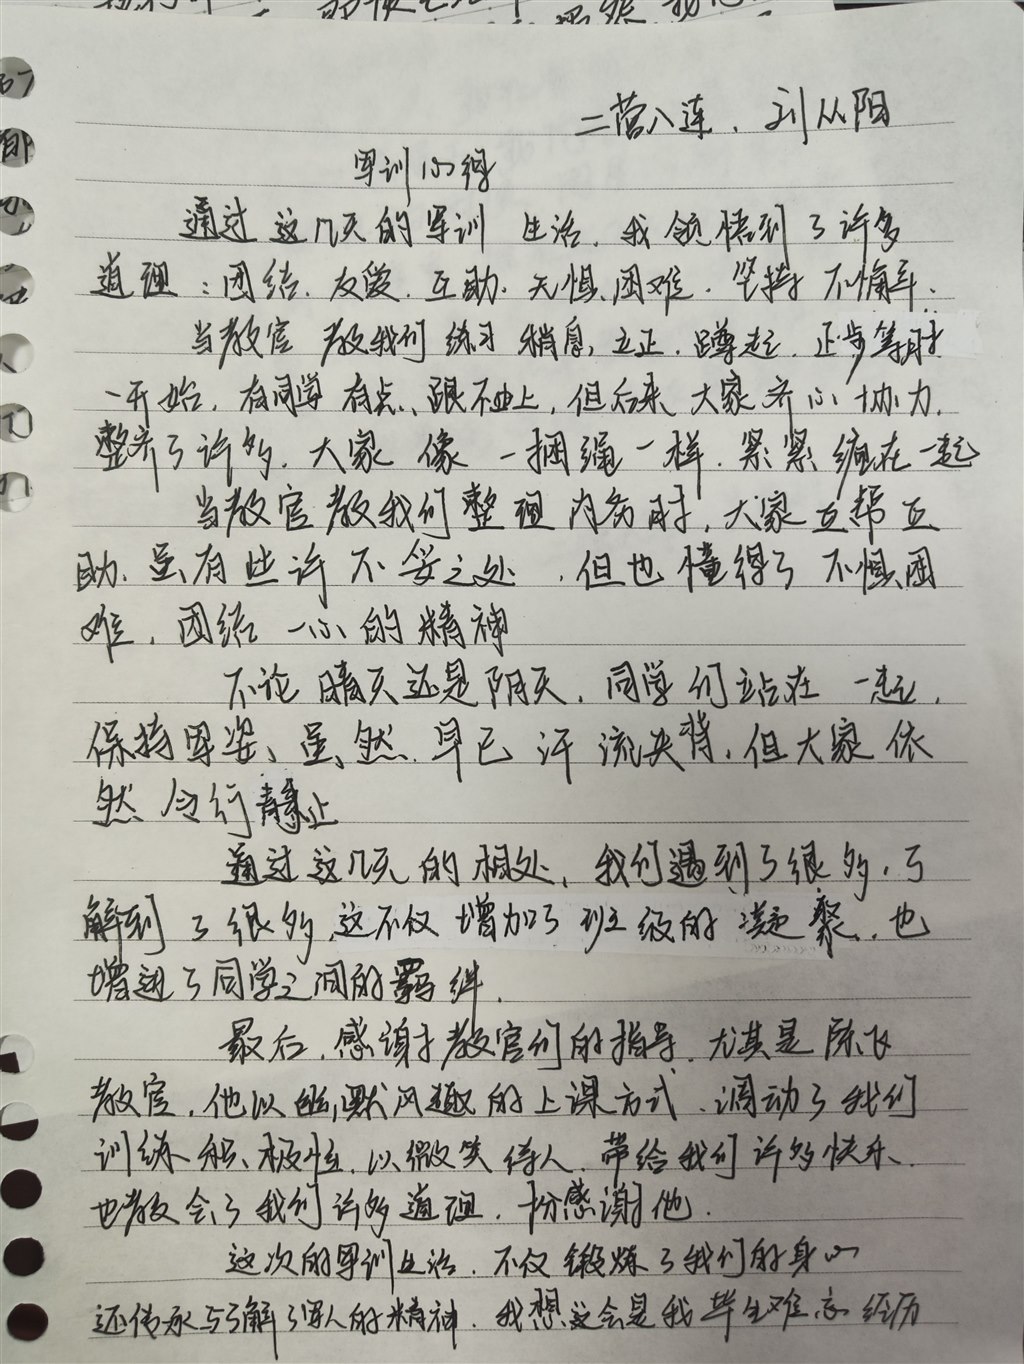 二营八连、刘从阳
军训心得
通过这几天的军训生活，我领悟到了许多
道理：团结、友爱、互助、无惧困难、坚持不懈等.
当教官教我们练习稍息，立正，蹲起，正步等时
一开始，有同学有点跟不上，但后来大家齐心协力，
整齐了许多，大家像一捆绳一样，紧紧缠在一起
当教官教我们整理内务时，大家互帮互
助，虽有些许不妥之处，但也懂得了不惧困
难，团结一心的精神
不论晴天还是阴天，同学们站在一起，
保持军姿、虽然早已汗流浃背，但大家依
然令行静止
通过这几天的相处，我们遇到了很多，了
解到了很多，这不仅增加了班级的凝聚，也
增进了同学之间的羁绊.
最后，感谢于教官们的指导，尤其是陈飞
教官，他以幽默风趣的上课方式，调动了我们
训练积极性，以微笑待人，带给我们许多快乐，
也教会了我们许多道理，十分感谢他.
这次的军训生活，不仅锻炼了我们的身心
还传承与了解了军人的精神，我想这会是我毕生难忘经历